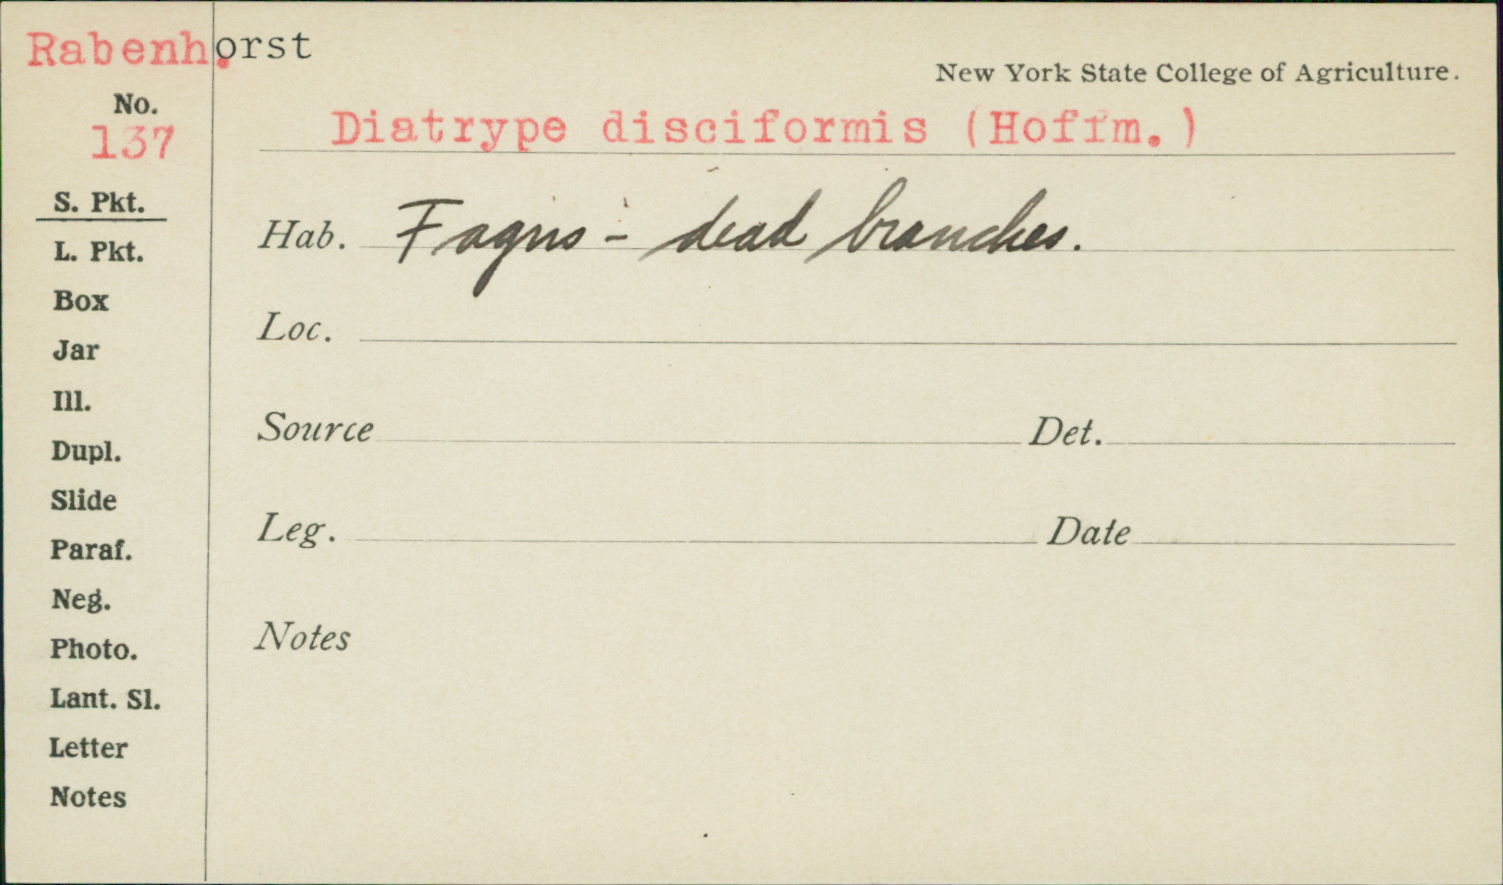 Rabenhorst
New York State College of Agriculture.
No.
137
Diatrype disciformis (Hoffm.)
S. Pkt.
L. Pkt.
Box
Jar
Ill.
Dupl.
Slide
Paraf.
Neg.
Photo.
Lant. Sl.
Letter
Notes
Hab. Fagus - dead branches.
Loc.
Source Det.
Leg. Date
Notes